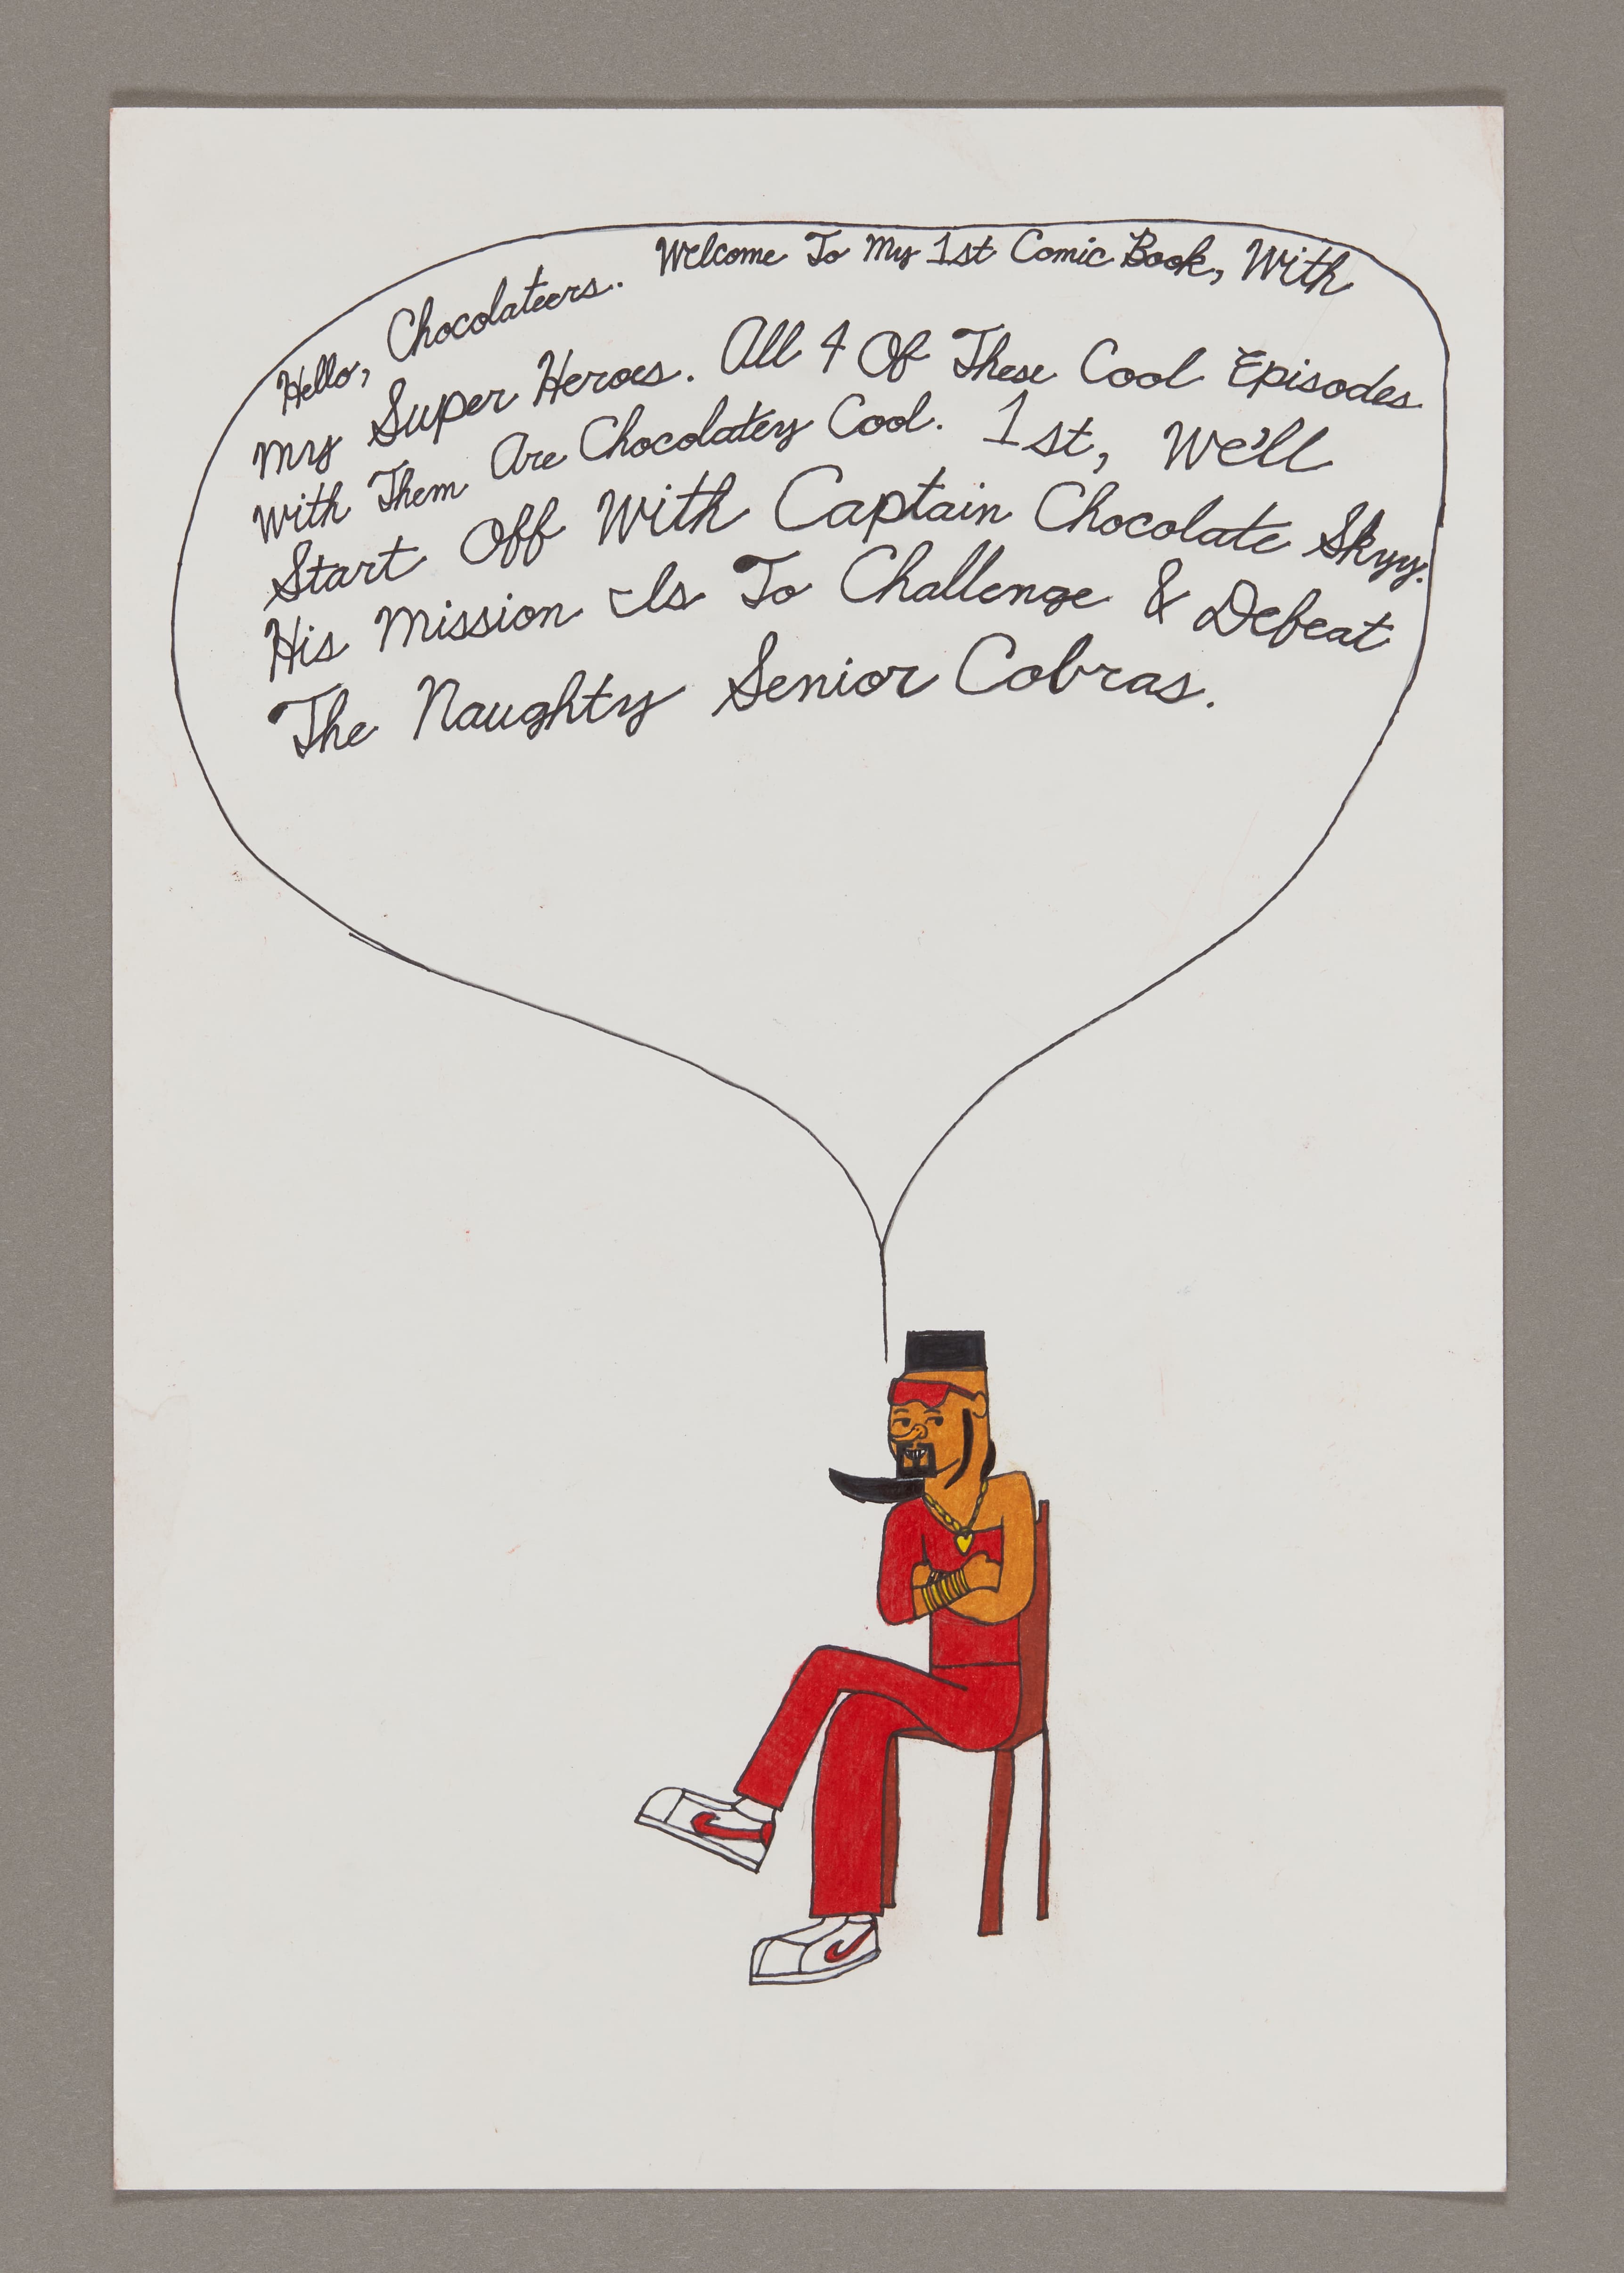 Hello, Chocolateers. Welcome To My 1st Comic Book, With
My Super Heroes. All 4 Of These Cool Episodes
With Them Are Chocolatey Cool. 1st, We'll
Start Off With Captain Chocolate Skyy.
His Mission Is To Challenge & Defeat
The Naughty Senior Cobras.